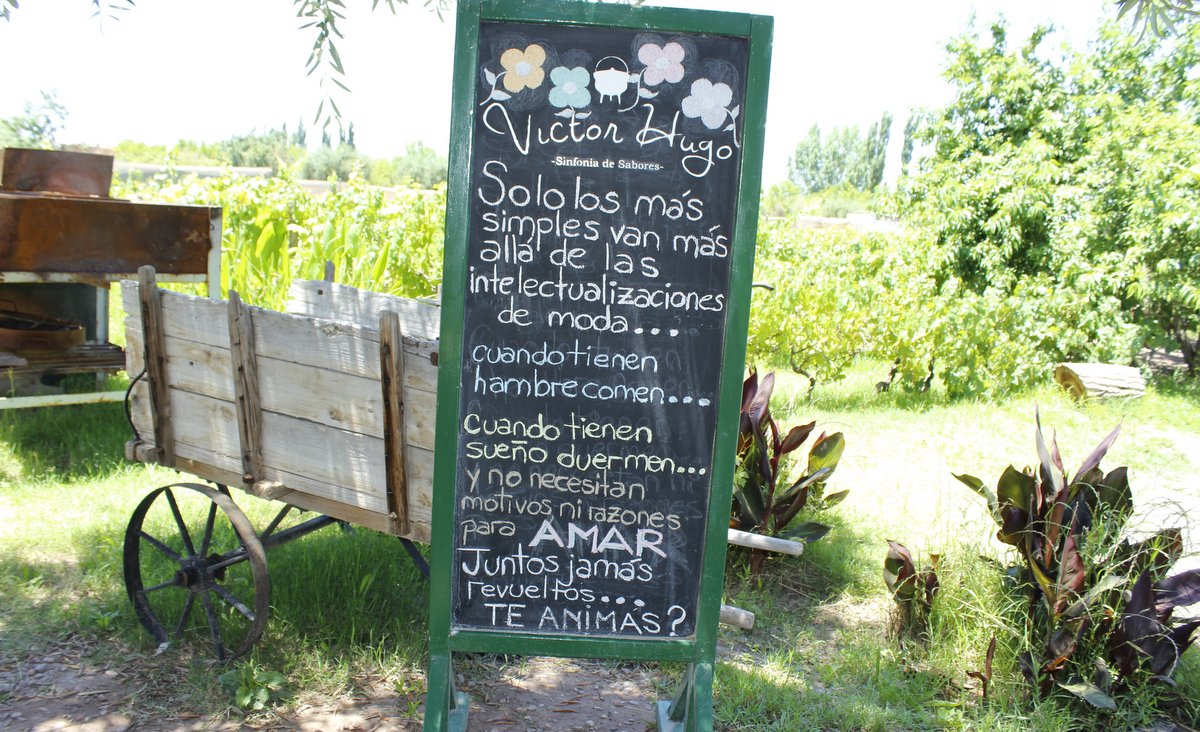 Victor Hugo
-Sinfonia de Sabores-
Solo los más
simples van más
allá de las
intelectualizaciones
de moda...
cuando tienen
hambre comen...
Cuando tienen
sueño duermen...
y no necesitan
motivos ni razones
para AMAR
Juntos jamás
revueltos...
TE ANIMÁS?